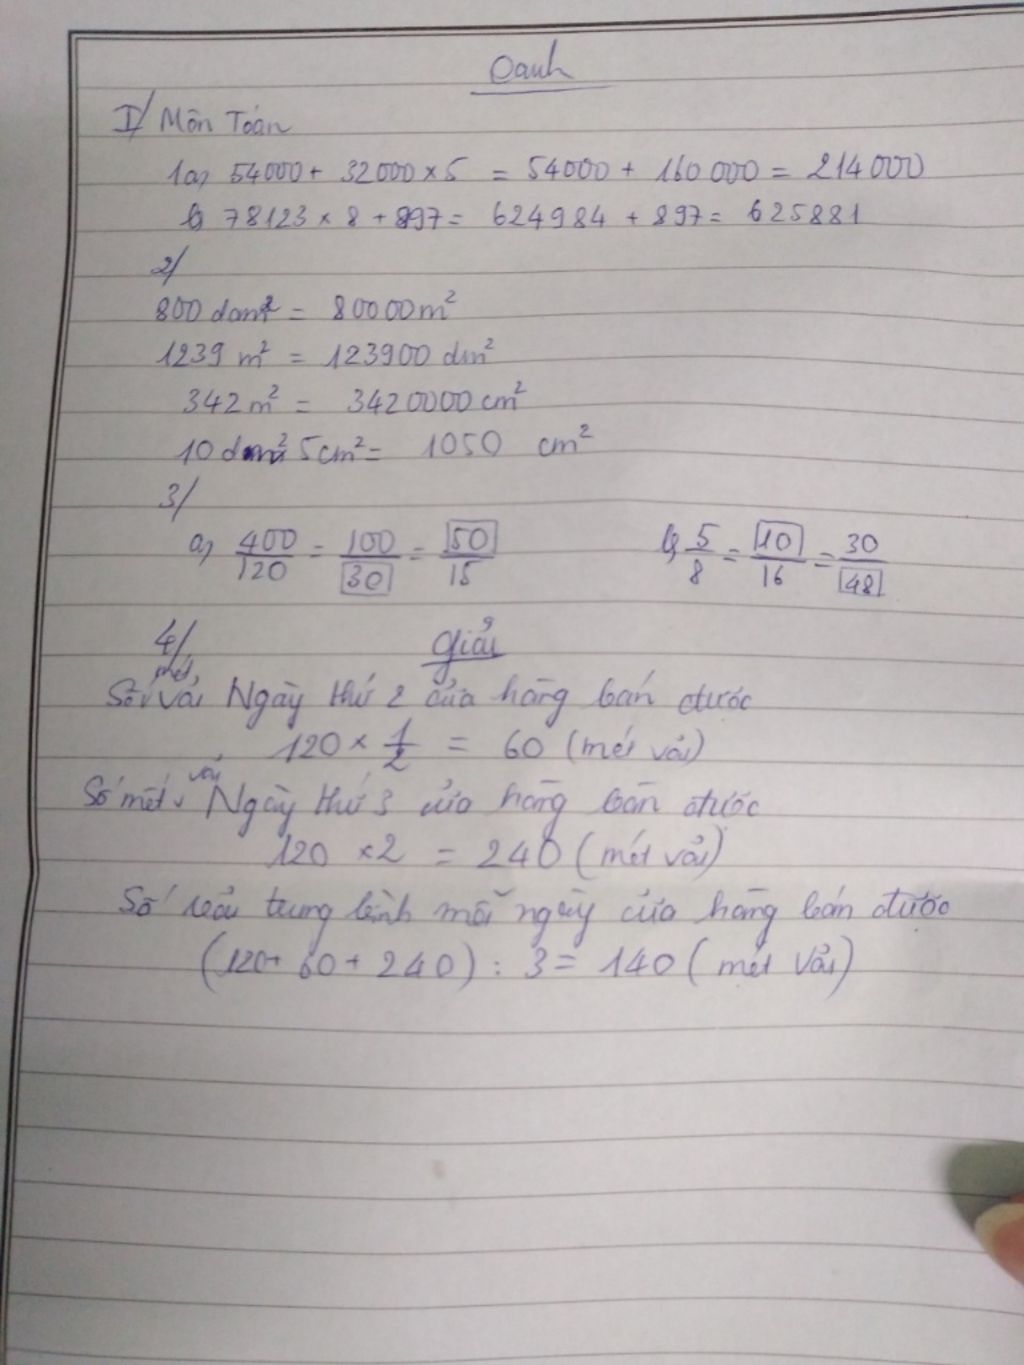 Oanh
I/ Môn Toán
1a, 54000 + 32000 × 5 = 54000 + 160 000 = 214 000
b, 78123 × 8 + 897 = 624984 + 897 = 625881
2/
800 dam² = 80000 m²
1239 m² = 123900 dm²
342 m² = 3420000 cm²
10 dm² 5 cm² = 1050 cm²
3/
a, 400/120 = 100/30 = 50/15 b, 5/8 = 10/16 = 30/48
4/ Giải
Số mét vải Ngày thứ 2 cửa hàng bán được
120 × 1/2 = 60 (mét vải)
Số mét vải Ngày thứ 3 cửa hàng bán được
120 × 2 = 240 (mét vải)
Số vải trung bình mỗi ngày cửa hàng bán được
(120 + 60 + 240) : 3 = 140 (mét vải)